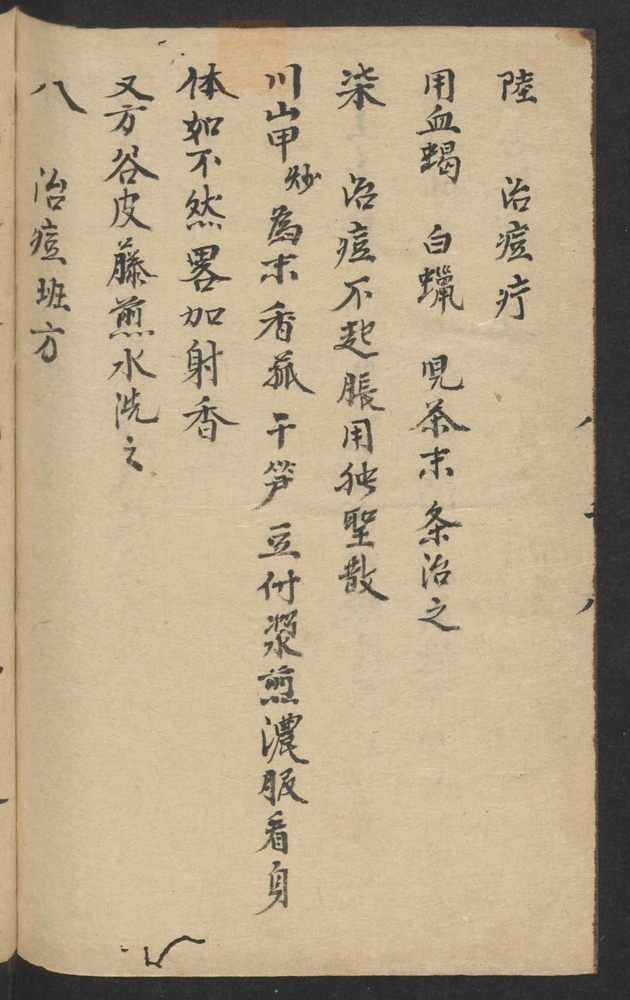 陸 治痘疔
用血蝎 白蠟 児茶末条治之
柒 治痘不起脹用独聖散
川山甲炒為末香菰干笋豆付漿煎濃服看身
体如不然畧加射香
又方谷皮藤煎水洗之
八 治痘班方